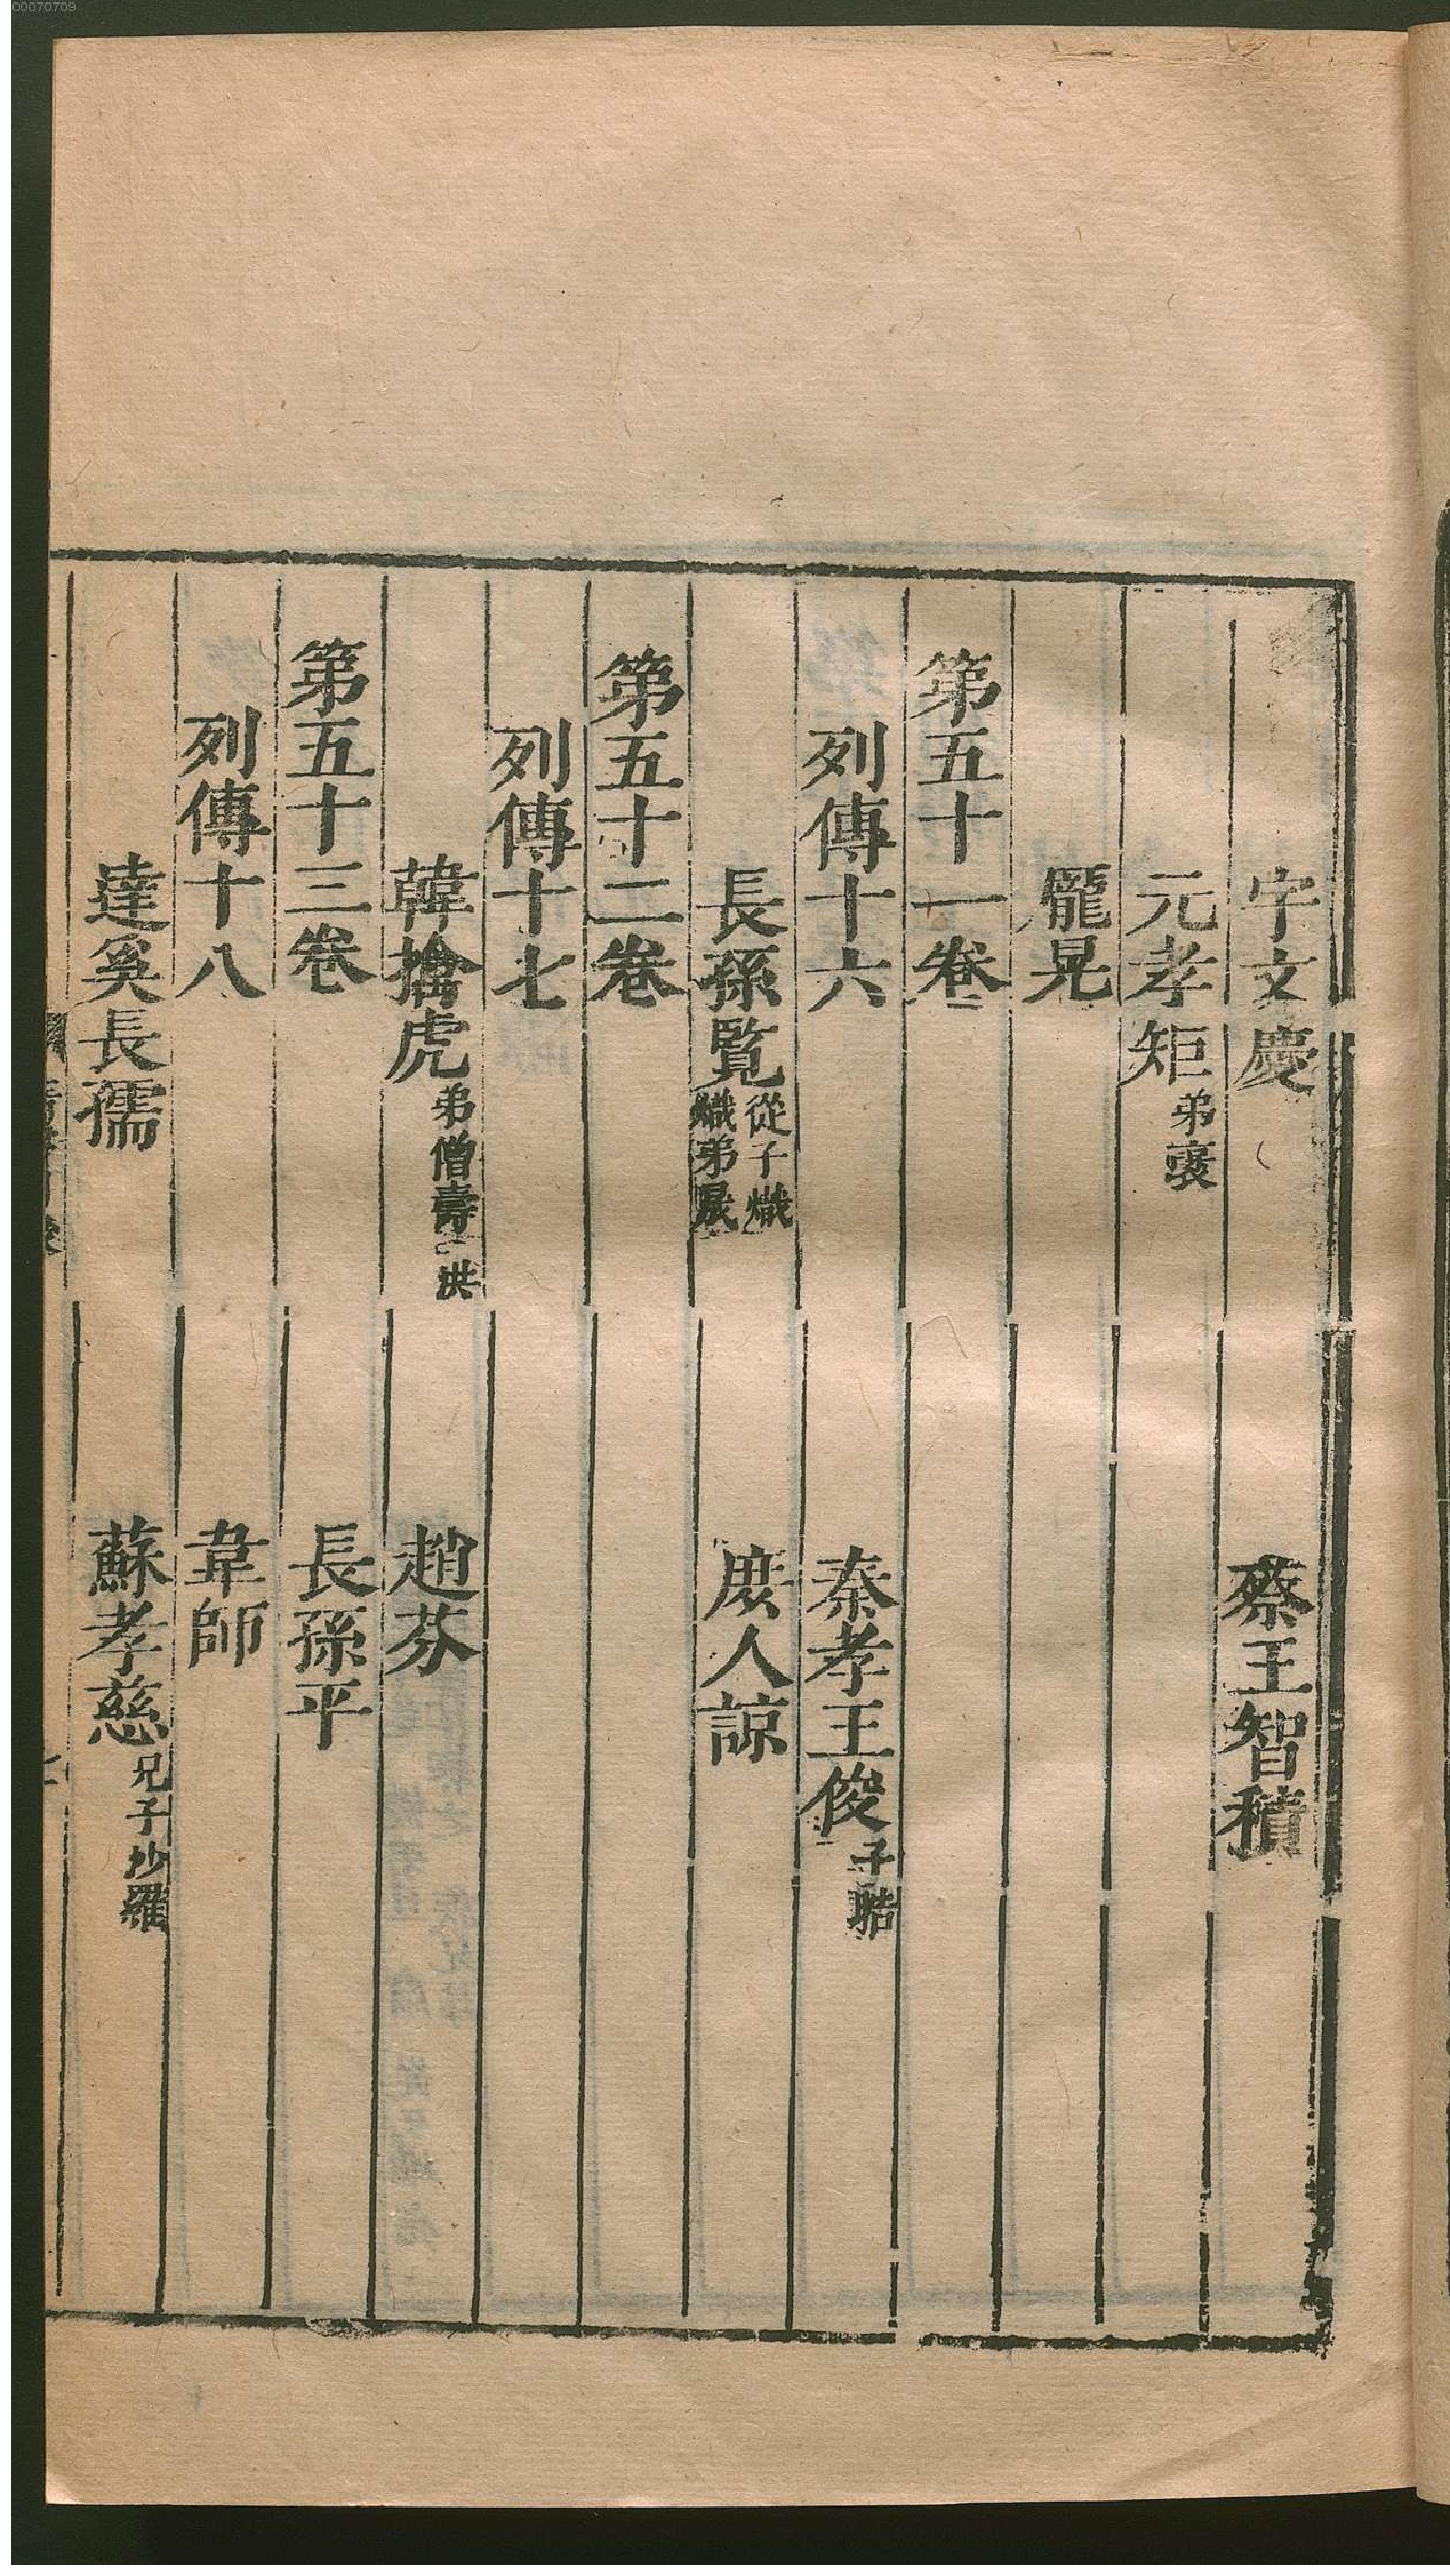 宇文慶　蔡王智積
元孝矩弟褒
龐晃
第五十一卷
列傳十六　秦孝王俊子
長孫覽從子熾熾弟晟　庶人諒
第五十二卷
列傳十七
韓擒虎弟僧壽　洪　趙芬
第五十三卷　長孫平
列傳十八　韋師
達奚長孺　蘇孝慈兄子抄羅